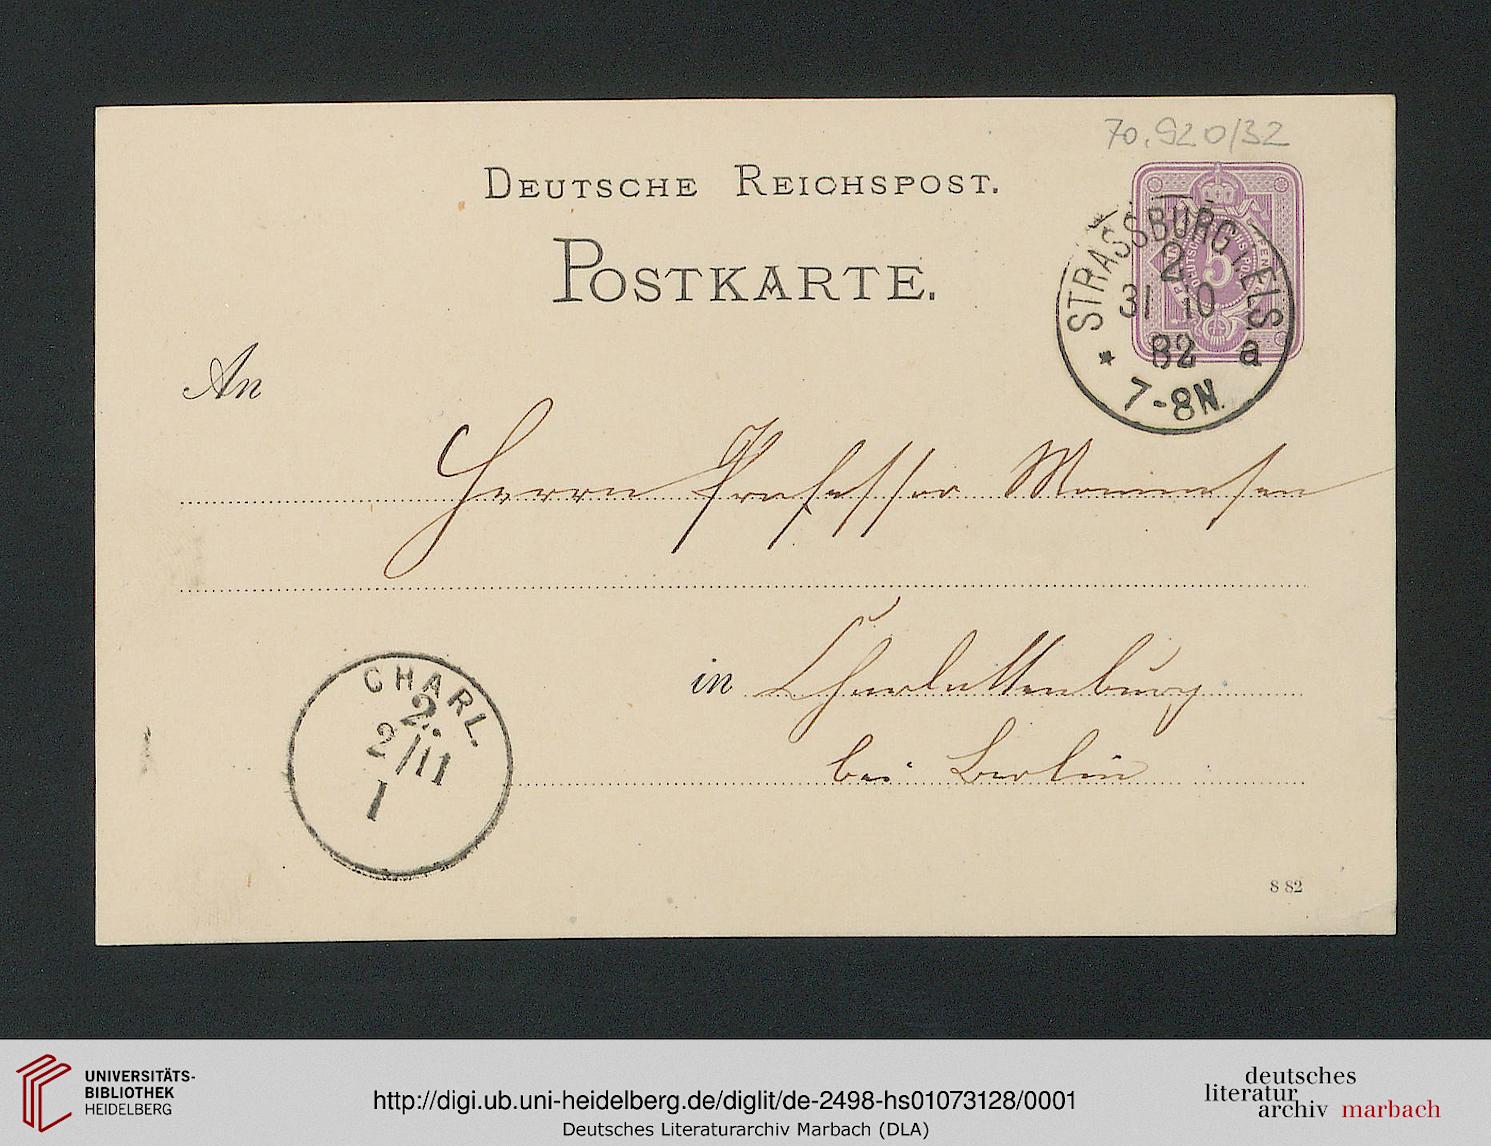 70.920/32
DEUTSCHE REICHSPOST.
POSTKARTE.
STRASSBURG i. ELS.
2
31 10
82 a
7-8N.
5
An
Herrn Professor Mommsen
in Charlottenburg
bei Berlin
CHARL.
2.
2/11
1
8 82
UNIVERSITÄTS-
BIBLIOTHEK
HEIDELBERG
http://digi.ub.uni-heidelberg.de/diglit/de-2498-hs01073128/0001
Deutsches Literaturarchiv Marbach (DLA)
deutsches
literatur
archiv marbach